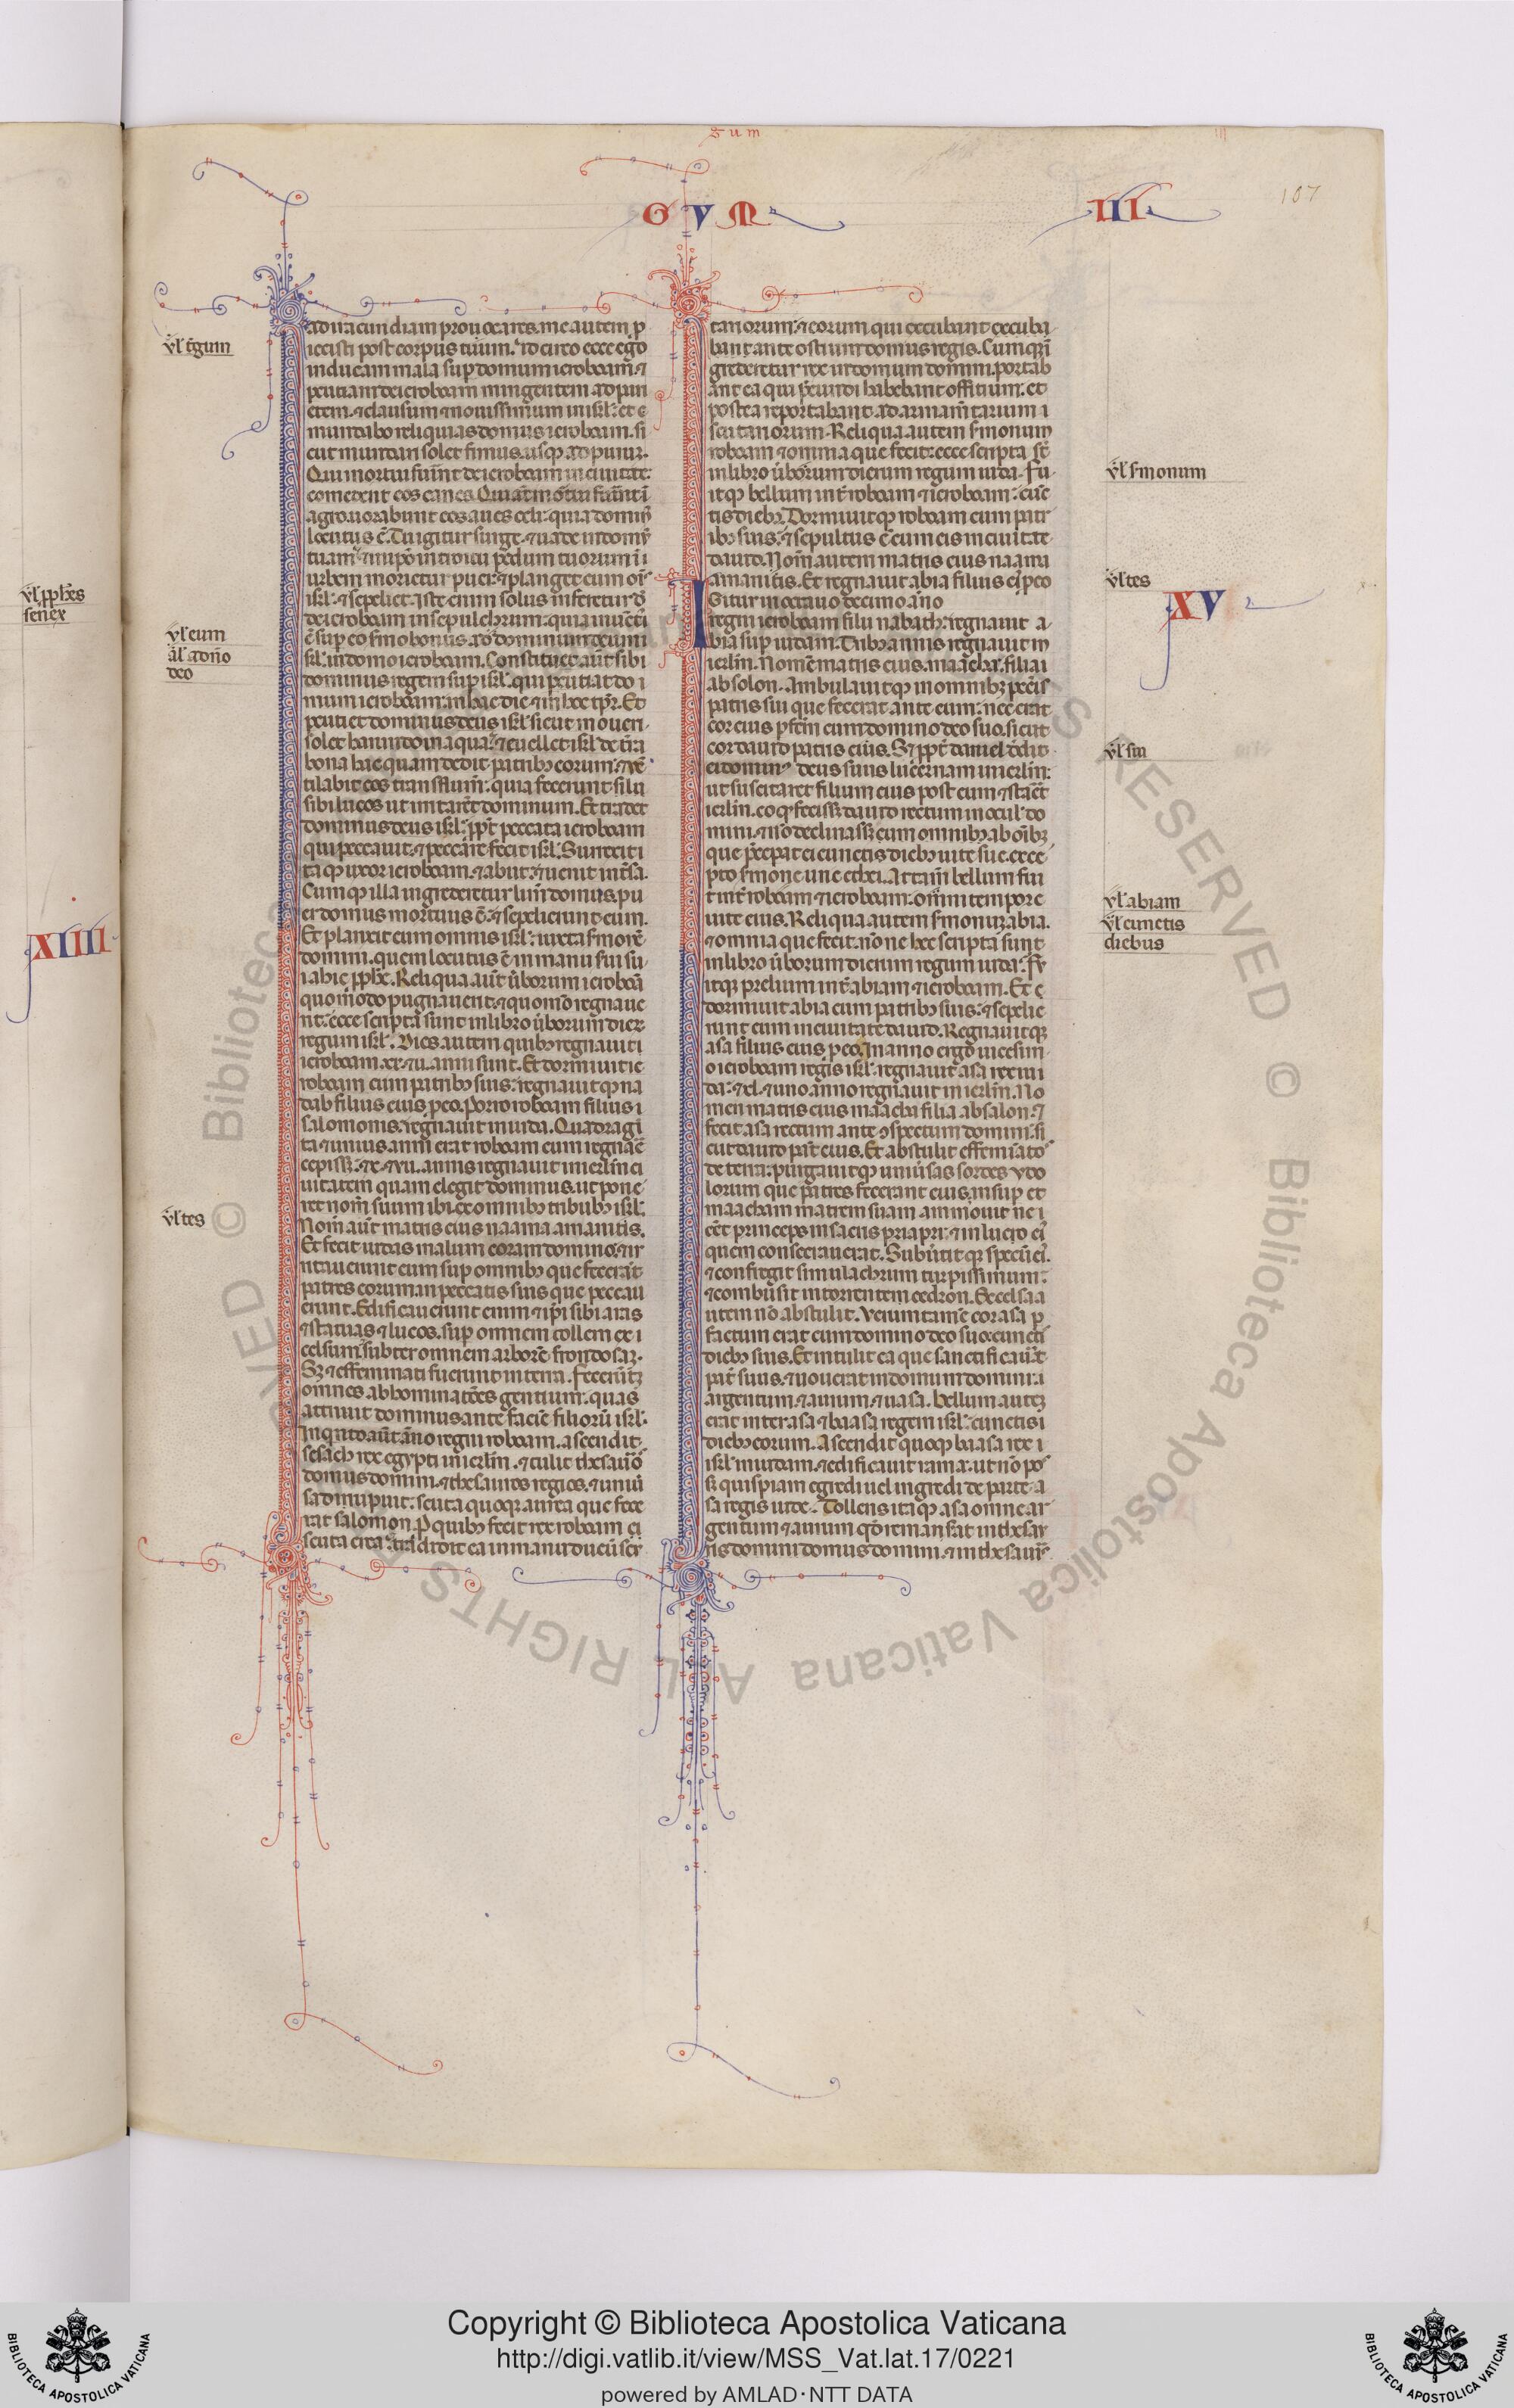 gum
III
G V M
III
107
ad iracundiam prouocares. me autem p
iecisti post corpus tuum. Idcirco ecce ego
inducam mala sup domum ieroboam. ⁊
percutiam de ieroboam mingentem ad pari
etem. ⁊ clausum ⁊ nouissimum in isrl. et e
mundabo reliquias domus ieroboam. si
cut mundari solet fimus. usqꝫ ad purum.
Qui mortui fuerint de ieroboam in ciuitate:
comedent eos canes. Qui autem mortui fuerint i
agro. uorabunt eos aues celi: quia dominus
locutus ē. Tu igitur surge. ⁊ uade in domum
urbem morietur puer. ⁊ planget eum omnis
isrl. ⁊ sepeliet. Iste enim solus inferetur d
de ieroboam in sepulchrum: quia inuentus
ē sup eo sermo bonus. ad dominum deum i
srl. in domo ieroboam. Constituet aūt sibi
dominus regem sup isrl. qui percutiat do i
mum ieroboam: in hac die. ⁊ in hoc tpr. Et
percutiet dominus deus isrl. sicut moueri
solet harundo in aqua. ⁊ euellet isrl de terra
bona hac quam dedit patribꝫ eorum. ⁊ uē
tilabit eos trans flum̄. quia fecerunt silii
sibi lucos ut irritarēt dominum. Et tradet
dominus deus isrl. ppt peccata ieroboam
qui peccauit. ⁊ peccare fecit isrl. Surrexit i
taqꝫ uxor ieroboam. ⁊ abiit. ⁊ uenit in tersa.
Cumqꝫ illa ingrederetur limen domus. pu
er domus mortuus ē. ⁊ sepelierunt eum.
Et planxit eum omnis isrl. iuxta sermonē
domini. quem locutus ē in manu sui su
i abie pphe. Reliqua aūt uerborum ieroboā
quomodo pugnauerit. ⁊ quomodo regnaue
rit: ecce scripta sunt in libro uerborum dierum
regum isrl. Dies autem quibꝫ regnauit i
ieroboam. xx. ⁊ ii. anni sunt. Et dormiuit ie
roboam cum patribꝫ suis: regnauitqꝫ na
dab filius eius p eo. Porro roboam filius i
salomonis. regnauit in iuda. Quadragi
ta ⁊ unius anni erat roboam cum regnare
cepisset. ⁊ x. ⁊ vii. annis regnauit in ierlm ci
uitatem quam elegit dominus. ut pone
ret nomen suum ibi. ex omnibꝫ tribubꝫ isrl.
Nomen aūt matris eius naama amanitis.
Et fecit iudas malum coram domino. ⁊ ir
ritauerunt eum sup omnibꝫ que fecerant
patres eorum in peccatis suis que peccau
erunt. Edificauerunt enim ⁊ ipsi sibi aras
⁊ statuas ⁊ lucos. sup omnem collem ex i
celsum. subter omnem arborē frondosam.
Sꝫ ⁊ effeminati fuerunt in terra. Feceruntqꝫ
omnes abhominationes gentium. quas
attriuit dominus ante faciē filiorū isrl.
In quinto aūt anno regni roboam. ascendit
sesach rex egypti in ierlm. ⁊ tulit thesauros
domus domini. ⁊ thesauros regios. ⁊ uniu
sa diripuit: scuta quoqꝫ aurea que fece
rat salomon. P quibꝫ fecit rex roboam ei
tariorum. ⁊ eorum qui excubant excuba
bant ante ostium domus regis. Cumqꝫ i
grederetur rex in domum domini. portab
ant ea qui preeundi habebant offitium. et
postea reportabant. ad armamentarium i
scutariorum. Reliqua autem sermonum
roboam ⁊ omnia que fecit: ecce scripta st
in libro uerborum dierum regum iuda. Fu
itqꝫ bellum inter roboam ⁊ ieroboam: cunc
tis diebꝫ. Dormiuitqꝫ roboam cum patr
ibꝫ suis. ⁊ sepultus ē cum eis in ciuitate
dauid. Nomen autem matris eius naama
amanitis. Et regnauit abia filius ei p eo
Igitur in octauo decimo anno
regni ieroboam filii nabath: regnauit a
bia sup iudam. Tribꝫ annis regnauit in
ierlm. Nomē matris eius. maacha. filia i
absolon. Ambulauitqꝫ in omnibꝫ peccatis
patris sui que fecerat ante eum: nec erat
cor eius pfectum cum domino deo suo. sicut
cor dauid patris eius. Sꝫ ppt dauid dedit
ei dominus deus suus lucernam in ierlm:
ut suscitaret filium eius post eum ⁊ staret
ierlm. eo qꝫ fecisset dauid rectum in oculis do
mini. ⁊ nō declinasset eum omnibꝫ ab omnibꝫ
que preceperat ei cunctis diebꝫ uite sue. exce
pto sermone urie ethei. Attamen bellum fui
t inter roboam ⁊ ieroboam: omni tempore
uite eius. Reliqua autem sermonum abia.
⁊ omnia que fecit. nonne hec scripta sunt
in libro uerborum dierum regum iuda. Fu
itqꝫ prelium inter abiam ⁊ ieroboam. Et e
dormiuit abia cum patribꝫ suis. ⁊ sepelie
runt eum in ciuitate dauid. Regnauitqꝫ
asa filius eius p eo. In anno ergo uicesim
o ieroboam regis isrl. regnauit asa rex iu
da: ⁊ xl. ⁊ uno anno regnauit in ierlm. No
men matris eius maacha filia absalon. ⁊
fecit asa rectum ante conspectum domini. si
cut dauid pater eius. Et abstulit effeminatos
de terra: purgauitqꝫ uniuersas sordes ydo
lorum que patres fecerant eius. insup et
maacham matrem suam ammouit ne i
cet princeps in sacris priapi. ⁊ in luco ei
quem consecrauerat. Subuertitqꝫ specum ei.
⁊ confregit simulachrum turpissimum.
⁊ combusit in torrentem cedron. Excelsa a
utem nō abstulit. Verumtamē cor asa p
fectum erat cum domino deo suo. cunctis
diebꝫ suis. Et intulit ea que sanctificauerat
pater suus. ⁊ uouerat in domum domini. i
argentum. ⁊ aurum. ⁊ uasa. bellum autem
erat inter asa ⁊ baasa regem isrl. cunctis i
diebꝫ eorum. Ascendit quoqꝫ baasa rex i
isrl in iudam. ⁊ edificauit rama. ut nō pos
sꝫ quispiam egredi uel ingredi de parte a
sa regis iude. Tollens itaqꝫ asa omne ar
gentum ⁊ aurum qd remanserat in thesau
ris domini domus domini. ⁊ in thesauris
ul tergum
ul eum
al ad dno
deo
ul tes
ul sermonum
ul tes
XV
ul sm
ul abiam
ul cunctis
diebus
ul pphes
senex
XIIII
Copyright © Biblioteca Apostolica Vaticana
http://digi.vatlib.it/view/MSS_Vat.lat.17/0221
powered by AMLAD·NTT DATA
BIBLIOTECA APOSTOLICA VATICANA
BIBLIOTECA APOSTOLICA VATICANA